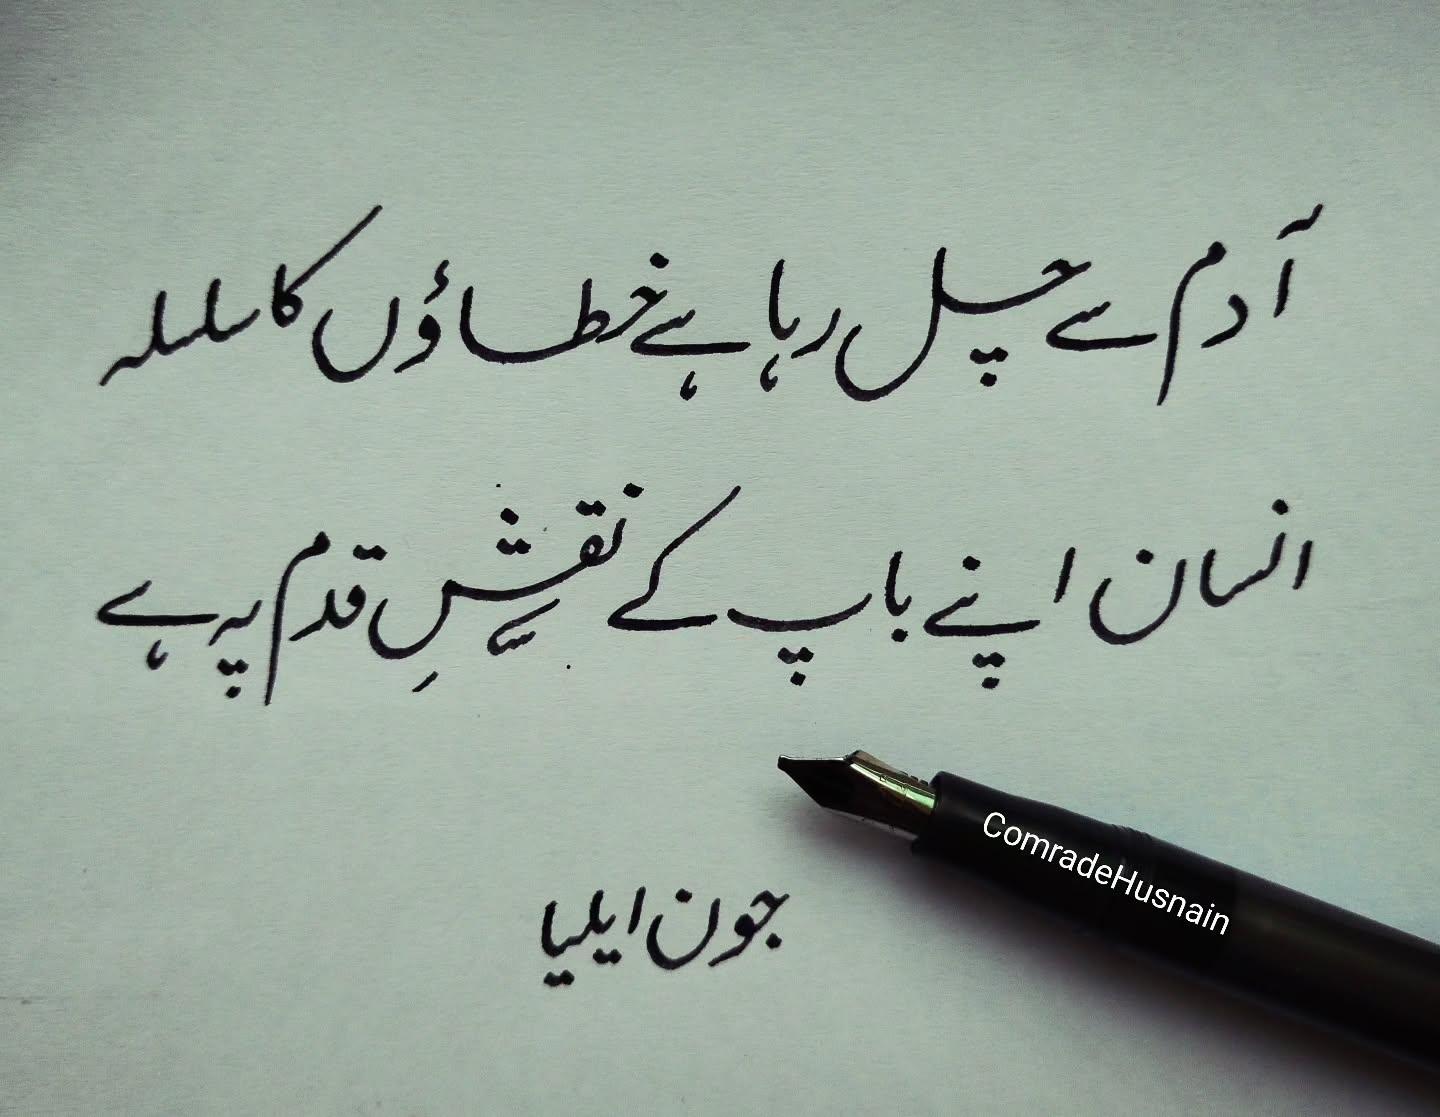 آدم سے چل رہا ہے خطاؤں کا سلسلہ
انسان اپنے باپ کے نقشِ قدم پہ ہے
جون ایلیا
ComradeHusnain